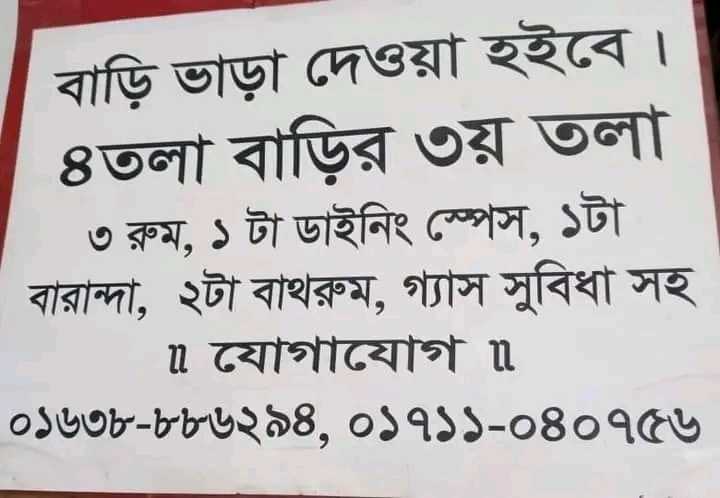 বাড়ি ভাড়া দেওয়া হইবে ।
৪তলা বাড়ির ৩য় তলা
৩ রুম, ১ টা ডাইনিং স্পেস, ১টা
বারান্দা, ২টা বাথরুম, গ্যাস সুবিধা সহ
॥ যোগাযোগ ॥
০১৬৩৮-৮৮৬২৯৪, ০১৭১১-০৪০৭৫৬